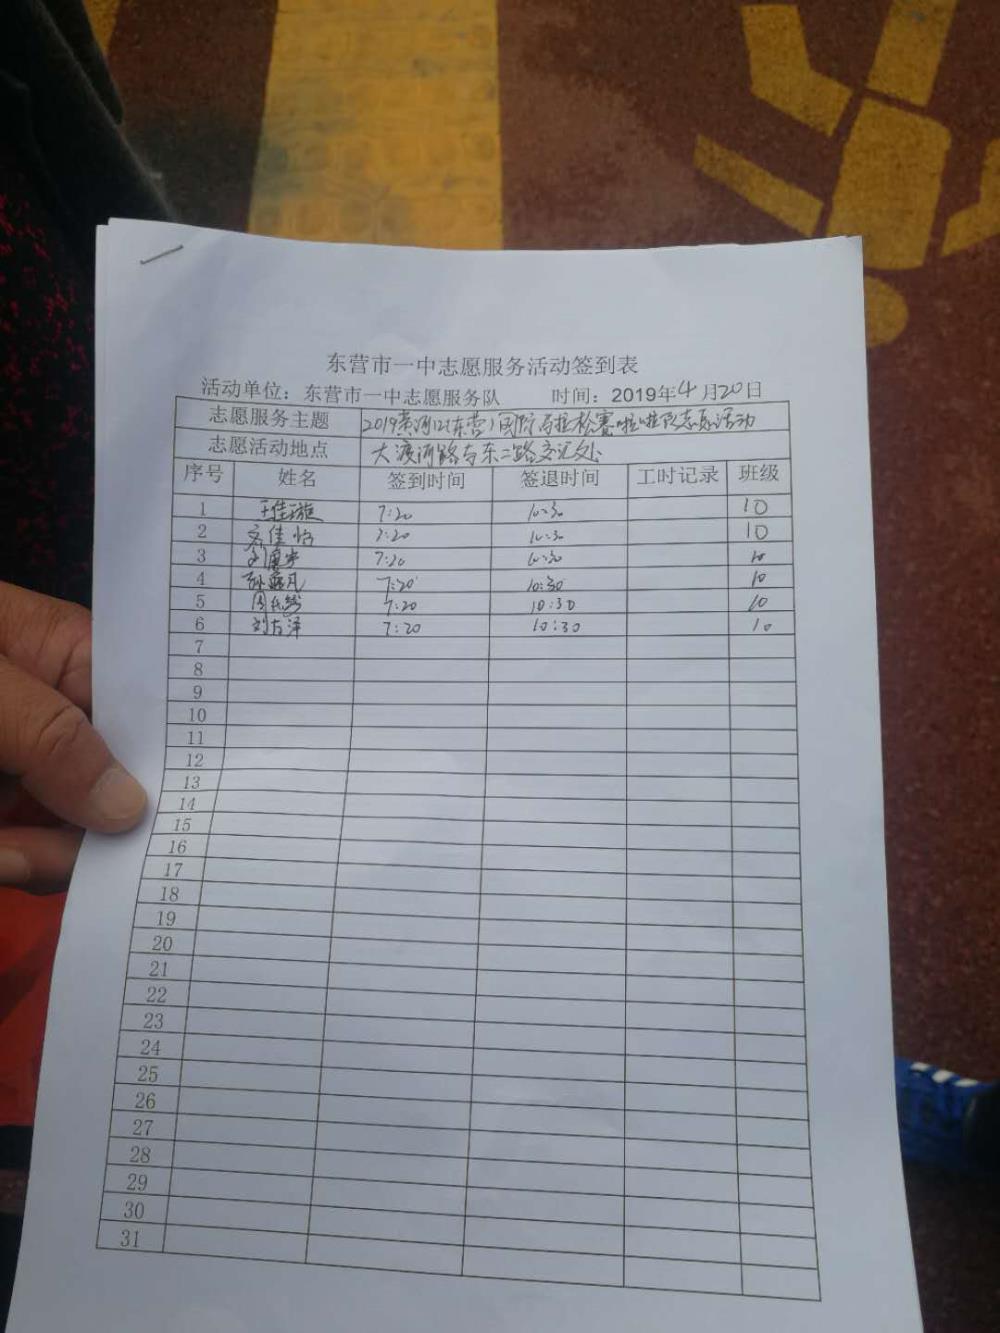 东营市一中志愿服务活动签到表
活动单位：东营市一中志愿服务队 时间：2019年4月20日
志愿服务主题 2019黄河口(东营)国际马拉松赛啦啦队志愿活动
志愿活动地点 大渡河路与东二路交汇处
序号 姓名 签到时间 签退时间 工时记录 班级
1 王佳璇 7:20 10:30 10
2 佳怡 7:20 10:30 10
3 7:20 10:30 10
4 孙 凡 7:20 10:30 10
5 周 7:20 10:30 10
6 刘 泽 7:20 10:30 10
7
8
9
10
11
12
13
14
15
16
17
18
19
20
21
22
23
24
25
26
27
28
29
30
31